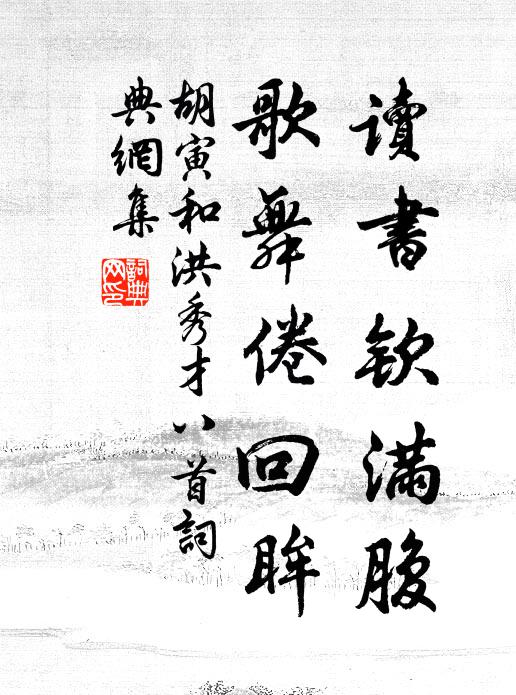 讀書欽滿腹
歌舞倦回眸
胡寅和洪秀才八首詞
典網集
詞典
网印